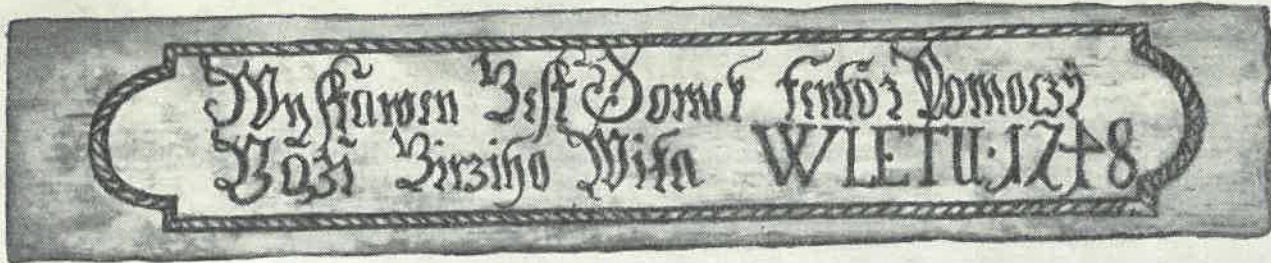 Wystawen Gest Domek tento z Pomoczy
Bozi Girziho Wita WLETU·1748